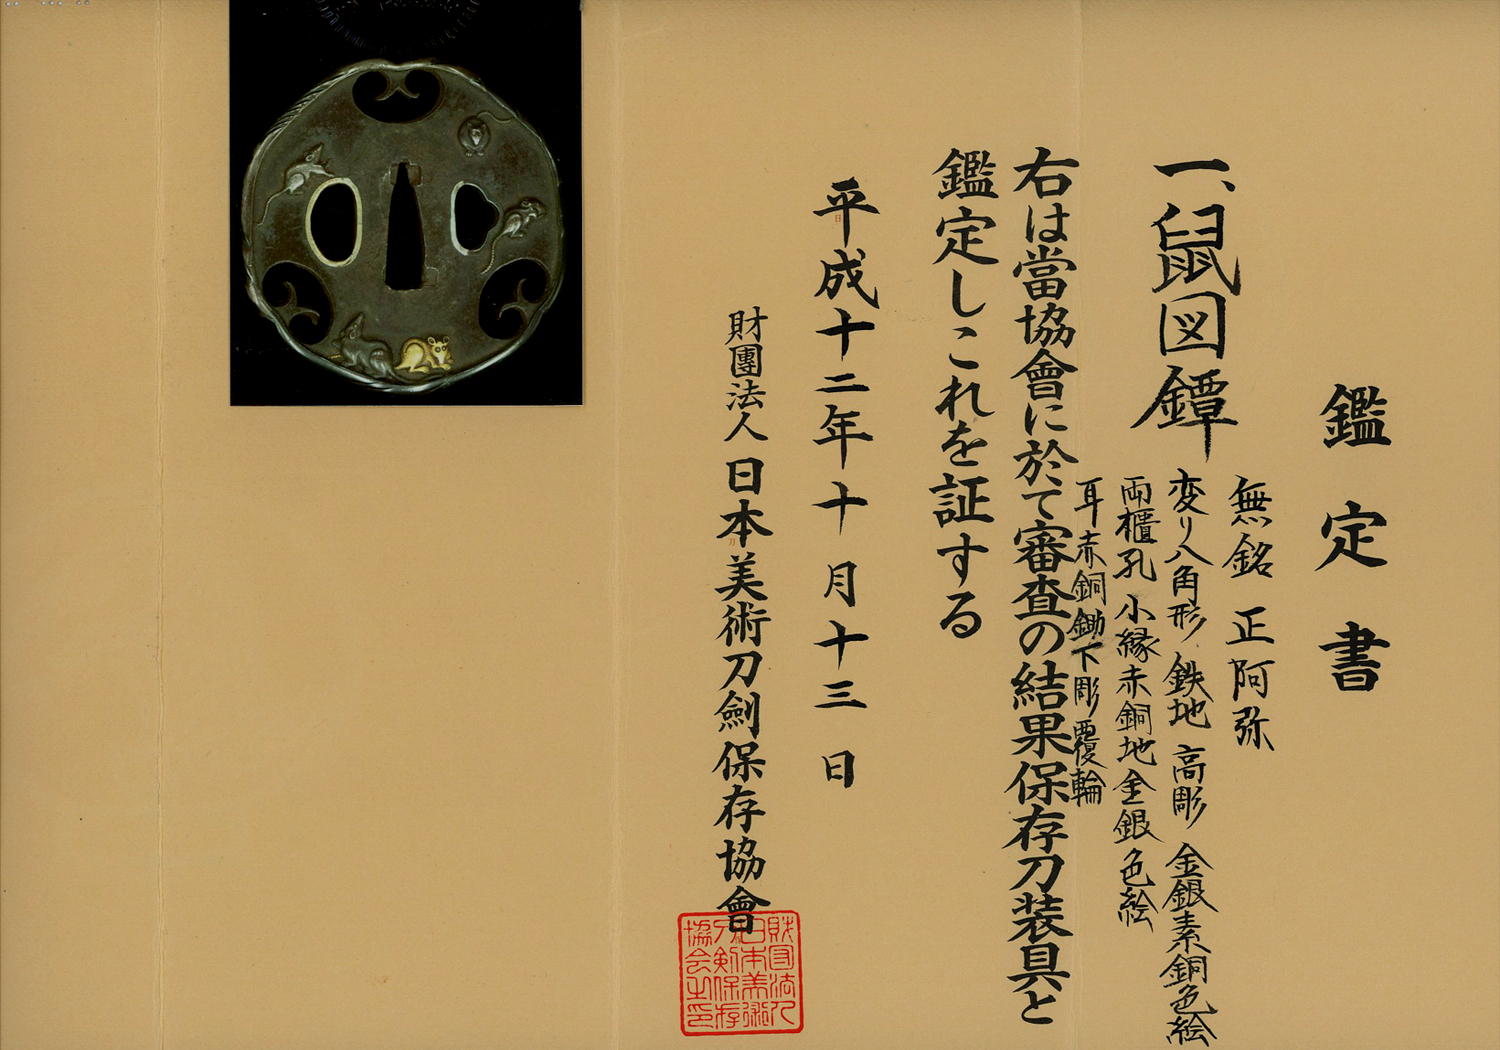 鑑定書
一、鼠図鐔
無銘 正阿弥
変り八角形 鉄地 高彫 金銀素銅色絵
両櫃孔 小縁赤銅地金銀色絵
耳赤銅鋤下彫覆輪
右は當協會に於て審査の結果保存刀装具と
鑑定しこれを証する
平成十二年十月十三日
財團法人 日本美術刀劍保存協會
財団法人
日本美術
刀剣保存
協会之印